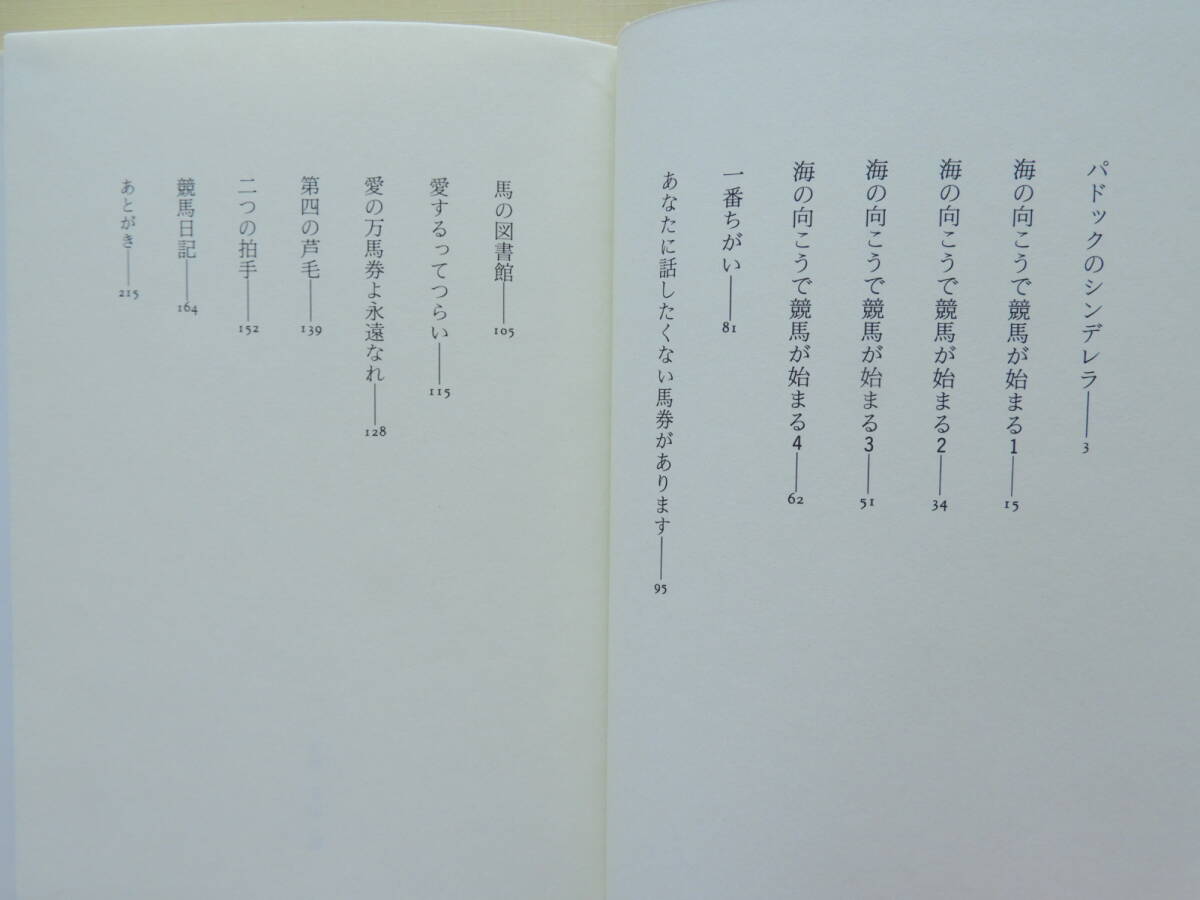 パドックのシンデレラ——3
海の向こうで競馬が始まる1——15
海の向こうで競馬が始まる2——34
海の向こうで競馬が始まる3——51
海の向こうで競馬が始まる4——62
一番ちがい——81
あなたに話したくない馬券があります——95
馬の図書館——105
愛するってつらい——115
愛の万馬券よ永遠なれ——128
第四の芦毛——139
二つの拍手——152
競馬日記——164
あとがき——215